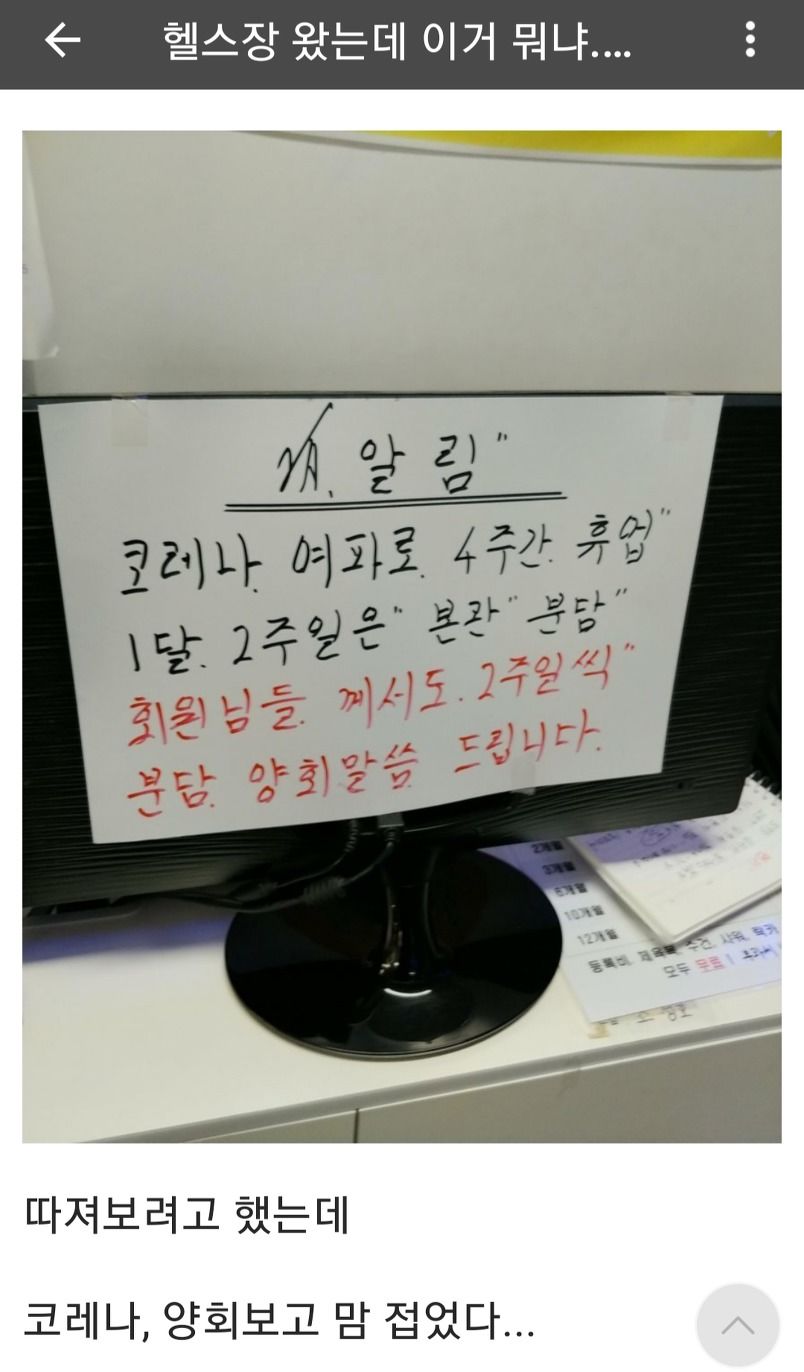 헬스장 왔는데 이거 뭐냐....
알 림"
코레나. 여파로. 4주간. 휴업"
1달. 2주일은" 본관" 분담"
회원님들. 께서도. 2주일씩"
분담. 양회말씀 드립니다.
2개월
3개월
6개월
10개월
12개월
등록비, 제육복, 수건, 샤워, 락카
모두 무료!
따져보려고 했는데
코레나, 양회보고 맘 접었다...